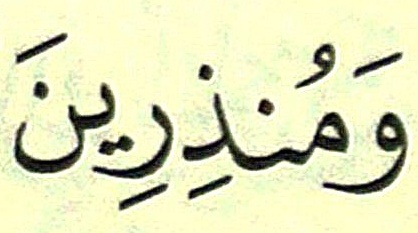 وَمُنذِرِينَ